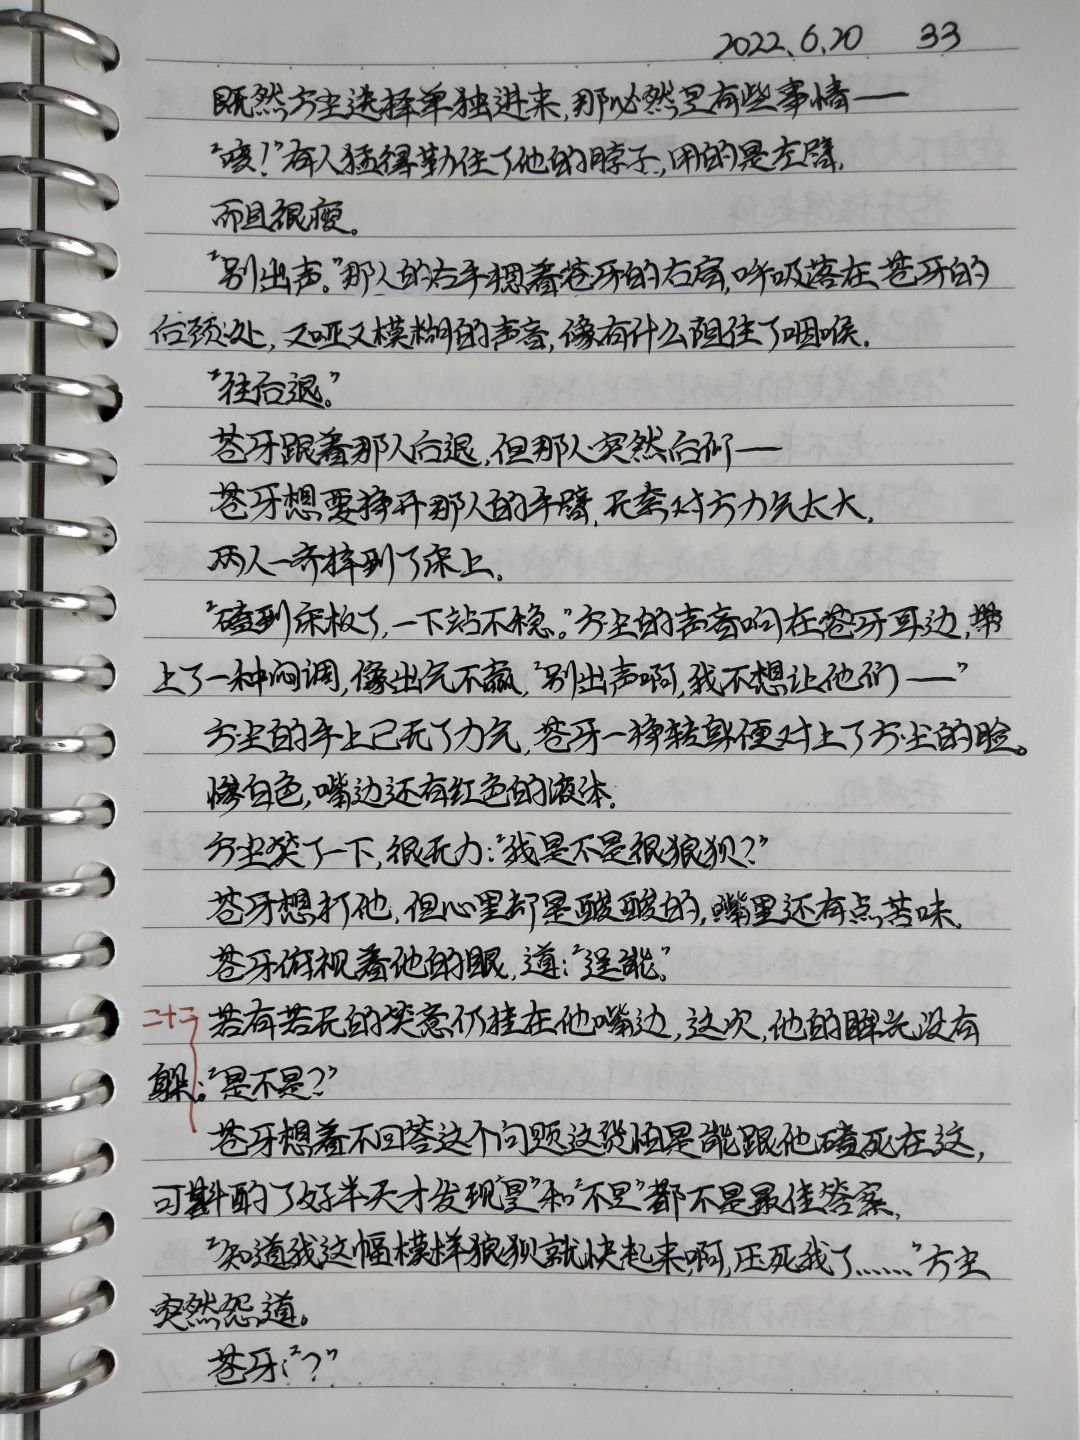 2022.6.20 33
既然方尘选择单独进来,那必然里有些事情——
"咳!"有人猛得勒住了他的脖子,用的是左臂,
而且很瘦。
"别出声。"那人的右手摁着苍牙的右肩,呼吸落在苍牙的
后颈处,又哑又模糊的声音,像有什么阻住了咽喉。
"往后退。"
苍牙跟着那人后退,但那人突然后仰——
苍牙想要挣开那人的手臂,无奈对方力气太大,
两人一齐摔到了床上。
"碰到床板了,一下站不稳。"方尘的声音响在苍牙耳边,带
上了一种闷调,像出气不赢,"别出声啊,我不想让他们——"
方尘的手上已无了力气,苍牙一挣转身便对上了方尘的脸。
惨白色,嘴边还有红色的液体。
方尘笑了一下,很无力:"我是不是很狼狈?"
苍牙想打他,但心里却是酸酸的,嘴里还有点苦味。
苍牙俯视着他的眼,道:"逞能。"
二十二 若有若无的笑意仍挂在他嘴边,这次,他的眸光没有
躲:"是不是?"
苍牙想着不回答这个问题这货怕是能跟他碰死在这,
可斟酌了好半天才发现"是"和"不是"都不是最佳答案。
"知道我这幅模样狼狈就快起来啊,压死我了……"方尘
突然怨道。
苍牙:"?"